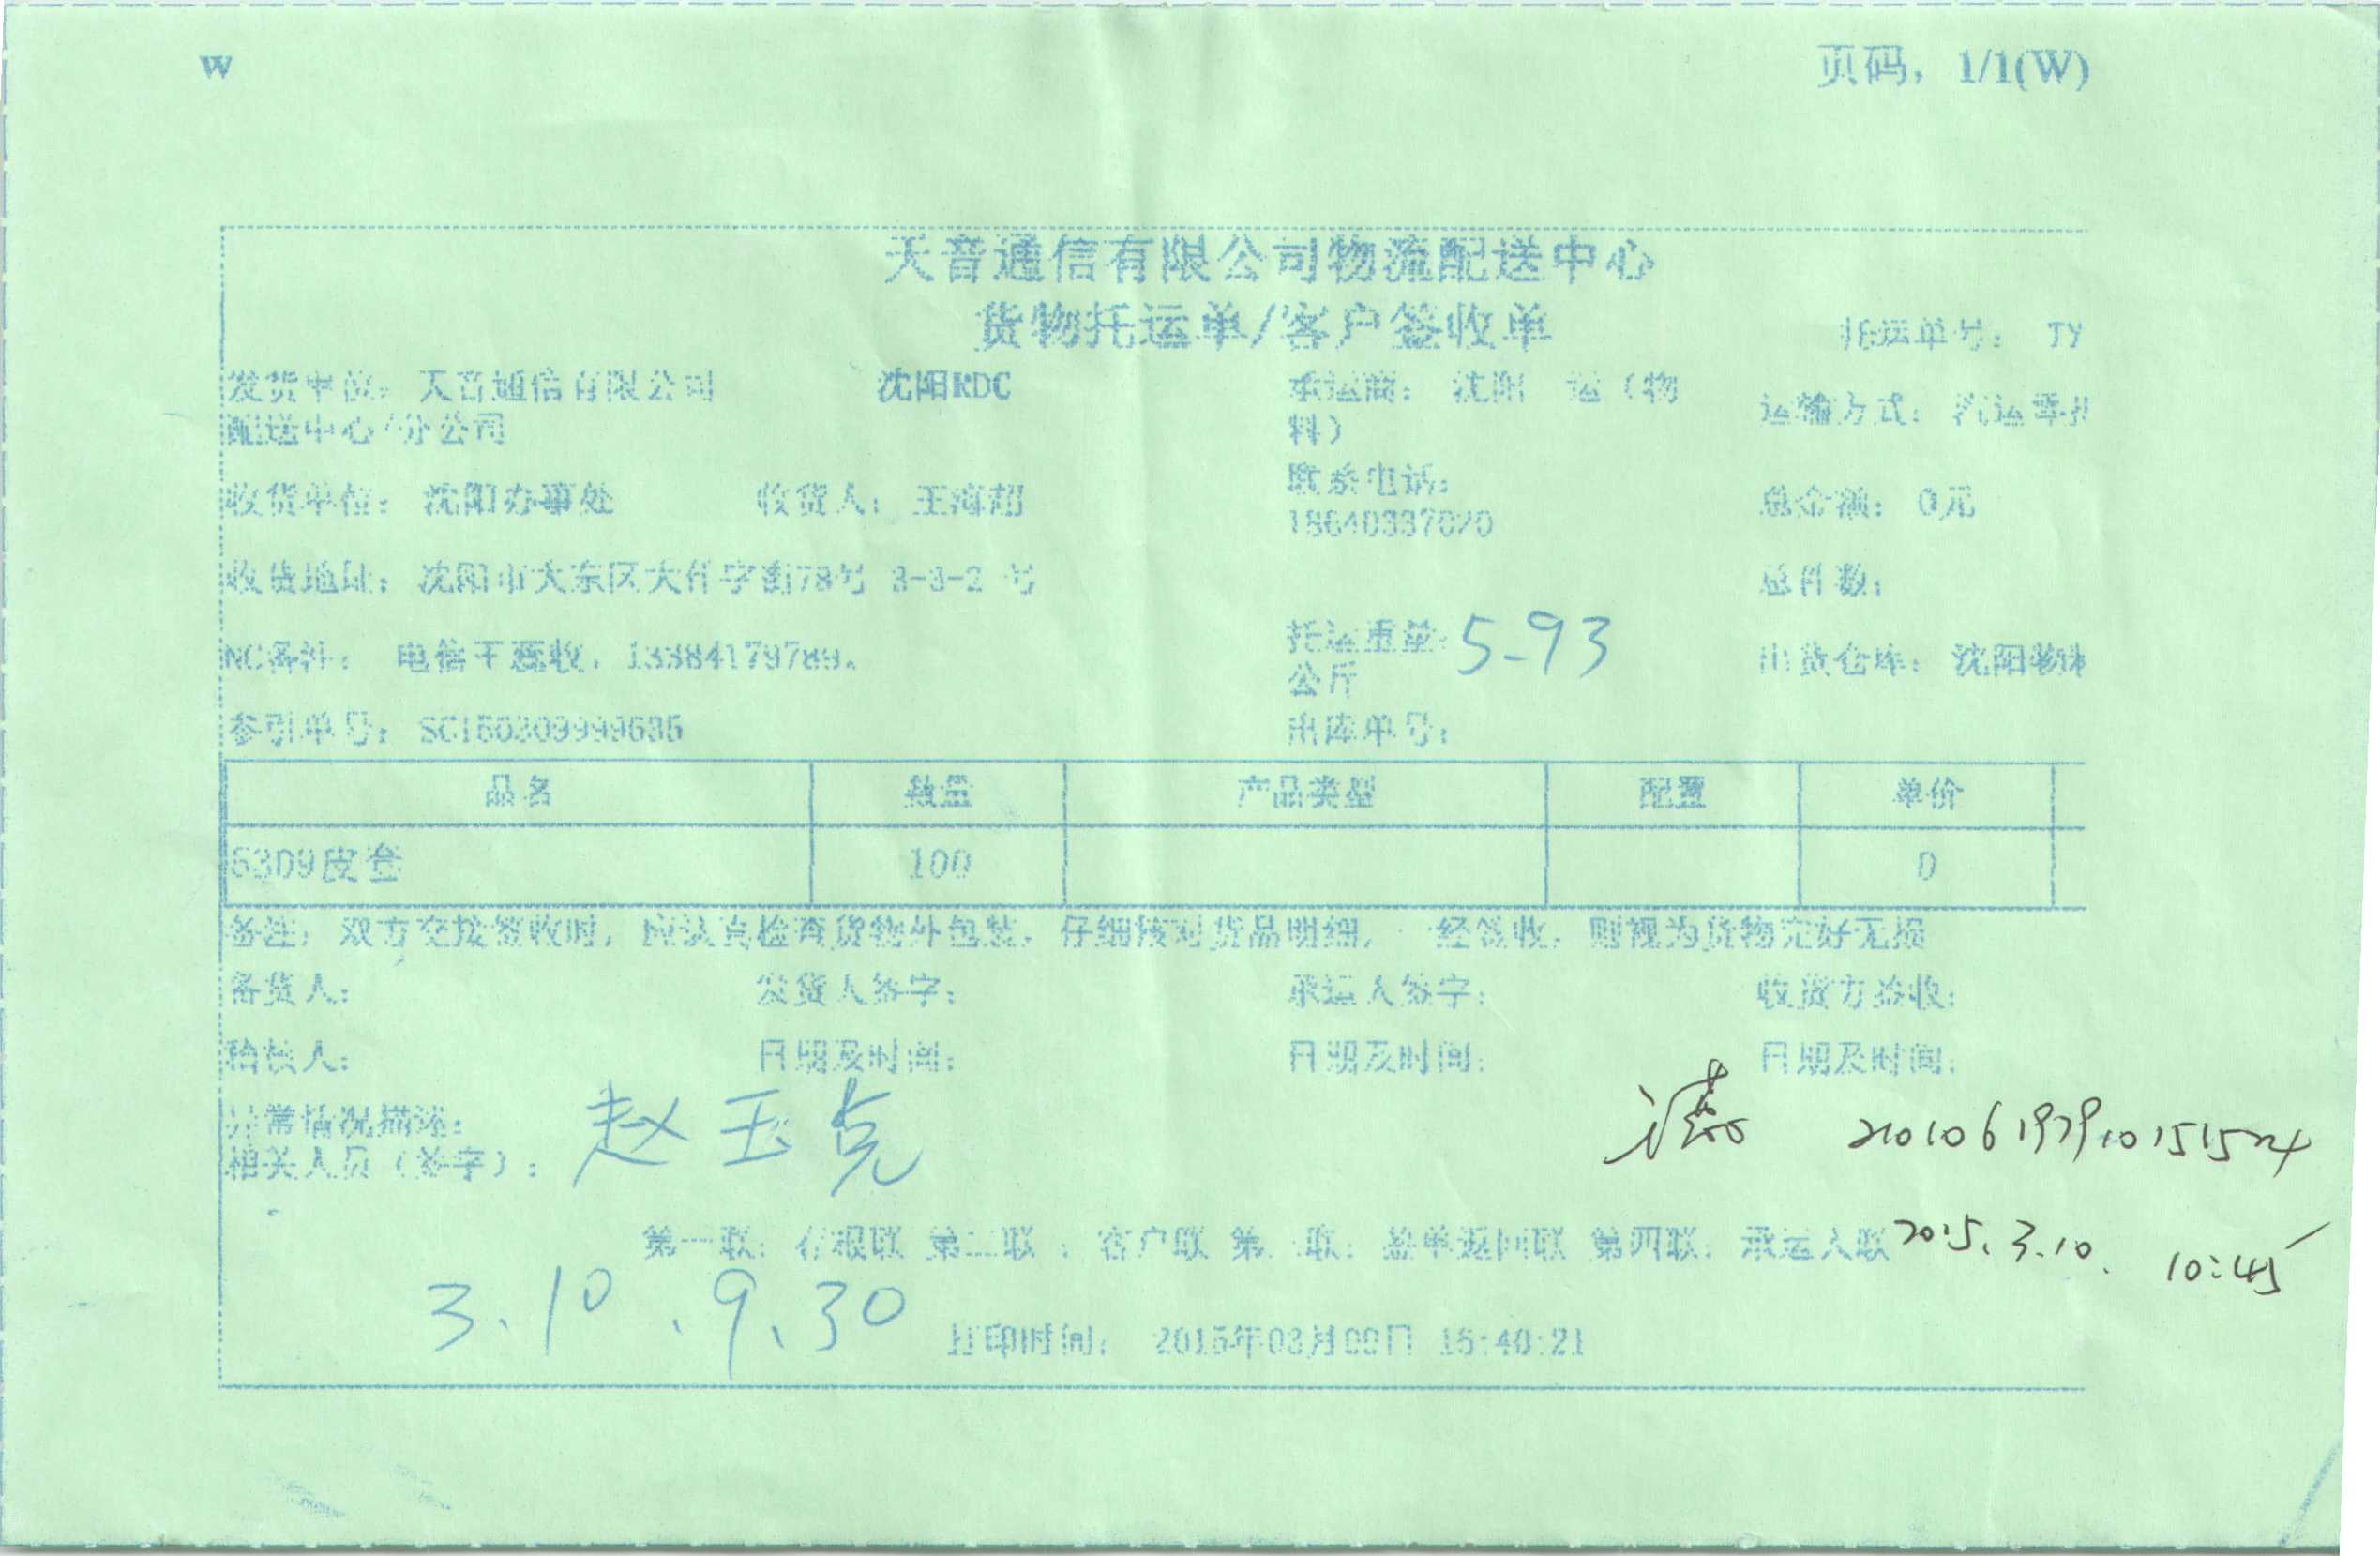 W
页码, 1/1(W)
天音通信有限公司物流配送中心
货物托运单/客户签收单
托运单号: TY
发货单位: 天音通信有限公司 沈阳RDC
配送中心/分公司
承运商: 沈阳 运(物
料)
运输方式: 汽运零担
收货单位: 沈阳办事处 收货人: 王海超
联系电话:
18640337020
总金额: 0元
收货地址: 沈阳市大东区大什字街78号 3-3-2 号
总件数:
NC备注: 电信王 收, 13384179789.
托运重量: 5-93
公斤
出货仓库: 沈阳物
参引单号: SC150309999535
出库单号:
品名 数量 产品类型 配置 单价
5309皮套 100 0
备注: 双方交接签收时, 应认真检查货物外包装, 仔细核对货品明细, 一经签收, 则视为货物完好无损
备货人: 发货人签字: 承运人签字: 收货方签收:
检核人: 日期及时间: 日期及时间: 日期及时间:
异常情况描述:
相关人员(签字): 赵玉
210106197910151524
第一联: 存根联 第二联: 客户联 第 联: 签单返回联 第四联: 承运人联
2015.3.10. 10:45
3.10.9.30
打印时间: 2015年03月09日 15:40:21